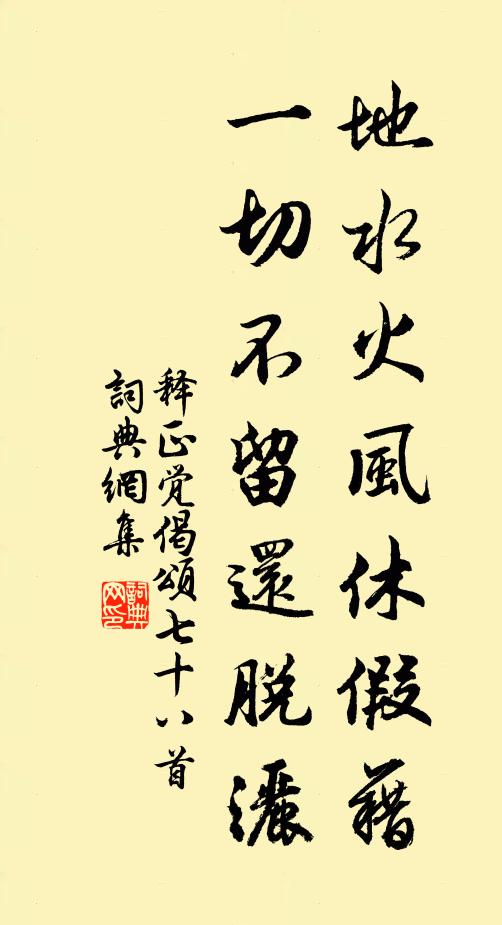 地水火風休假藉
一切不留還脫灑
释正覺偈頌七十八首
詞典網集
詞典网印